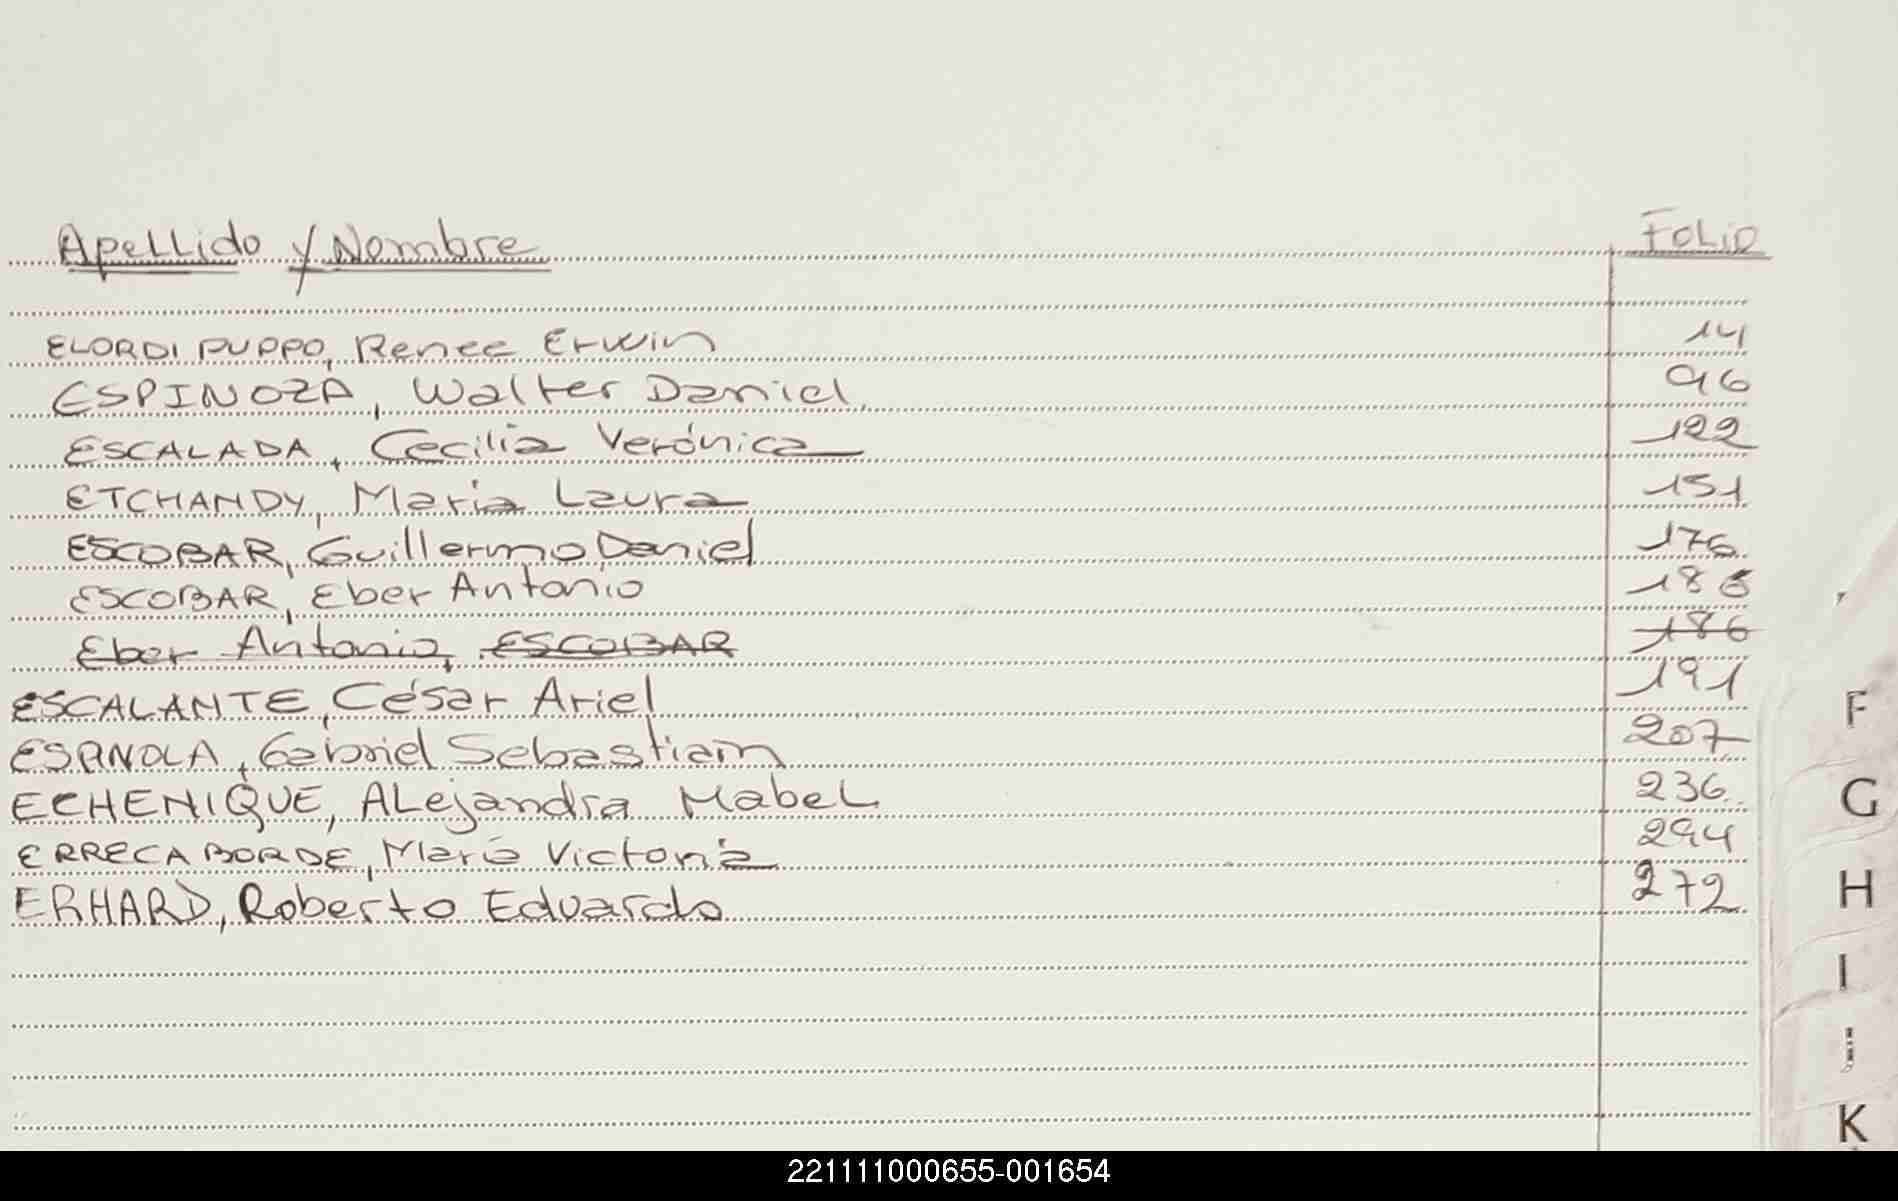 Apellido y Nombre Folio
ELORDI PUPPO, Renee Erwin 14
ESPINOZA, Walter Daniel 96
ESCALADA, Cecilia Verónica 122
ETCHANDY, Maria Laura 151
ESCOBAR, Guillermo Daniel 176
ESCOBAR, Eber Antonio 186
Eber Antonio, ESCOBAR 186
ESCALANTE, César Ariel 191
ESPAÑOLA, Gabriel Sebastiam 207
ECHENIQUE, ALejandra MabeL 236
ERRECABORDE, Maria Victoria 294
ERHARD, Roberto Eduardo 272
F
G
H
I
J
K
221111000655-001654